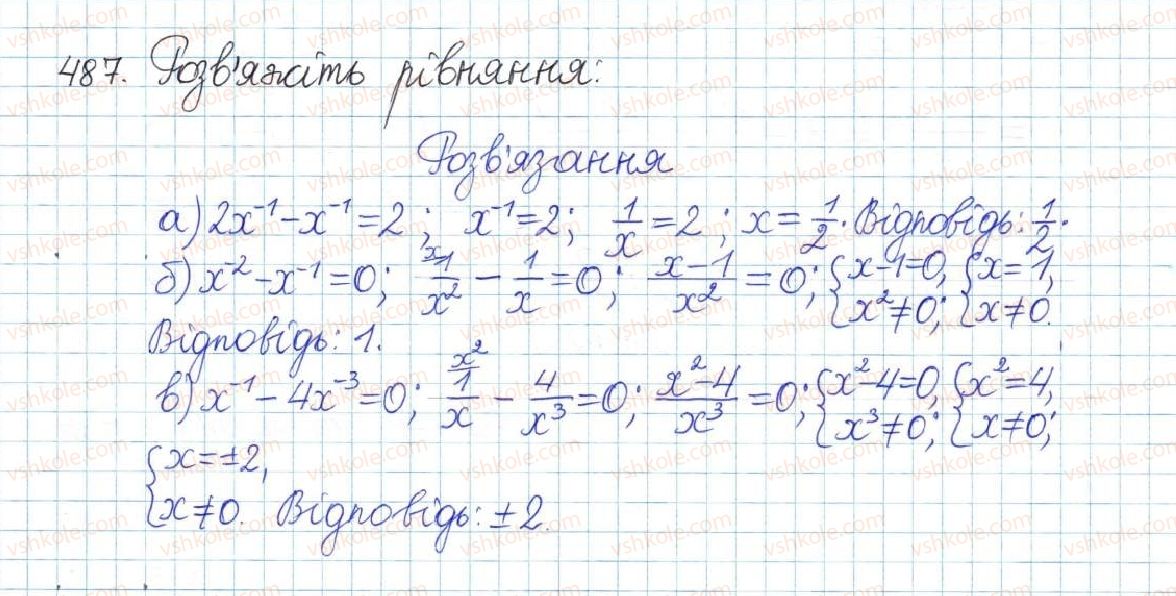 487. Розв'яжіть рівняння:
Розв'язання
а) 2x⁻¹ - x⁻¹ = 2; x⁻¹ = 2; 1/x = 2; x = 1/2. Відповідь: 1/2.
б) x⁻² - x⁻¹ = 0; 1/x² - 1/x = 0; (x-1)/x² = 0; { x-1=0, x²≠0; { x=1, x≠0.
Відповідь: 1.
в) x⁻¹ - 4x⁻³ = 0; x² 1/x - 4/x³ = 0; (x²-4)/x³ = 0; { x²-4=0, x³≠0; { x²=4, x≠0;
{ x=±2,
x≠0. Відповідь: ±2.